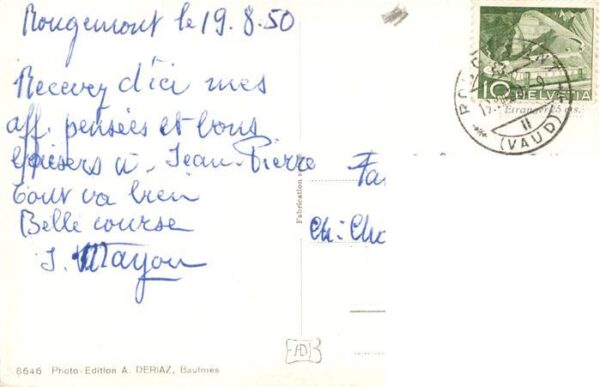 Rougemont le 19.8.50
Recevez d'ici mes
aff. pensées et bons
baisers à Jean-Pierre
Tout va bien
Belle course
J. Mayou
Fa
Ch: Cha
10 HELVETIA
Etranger 25 cts.
II
(VAUD)
Fabrication
8646 Photo-Edition A. DERIAZ, Baulmes